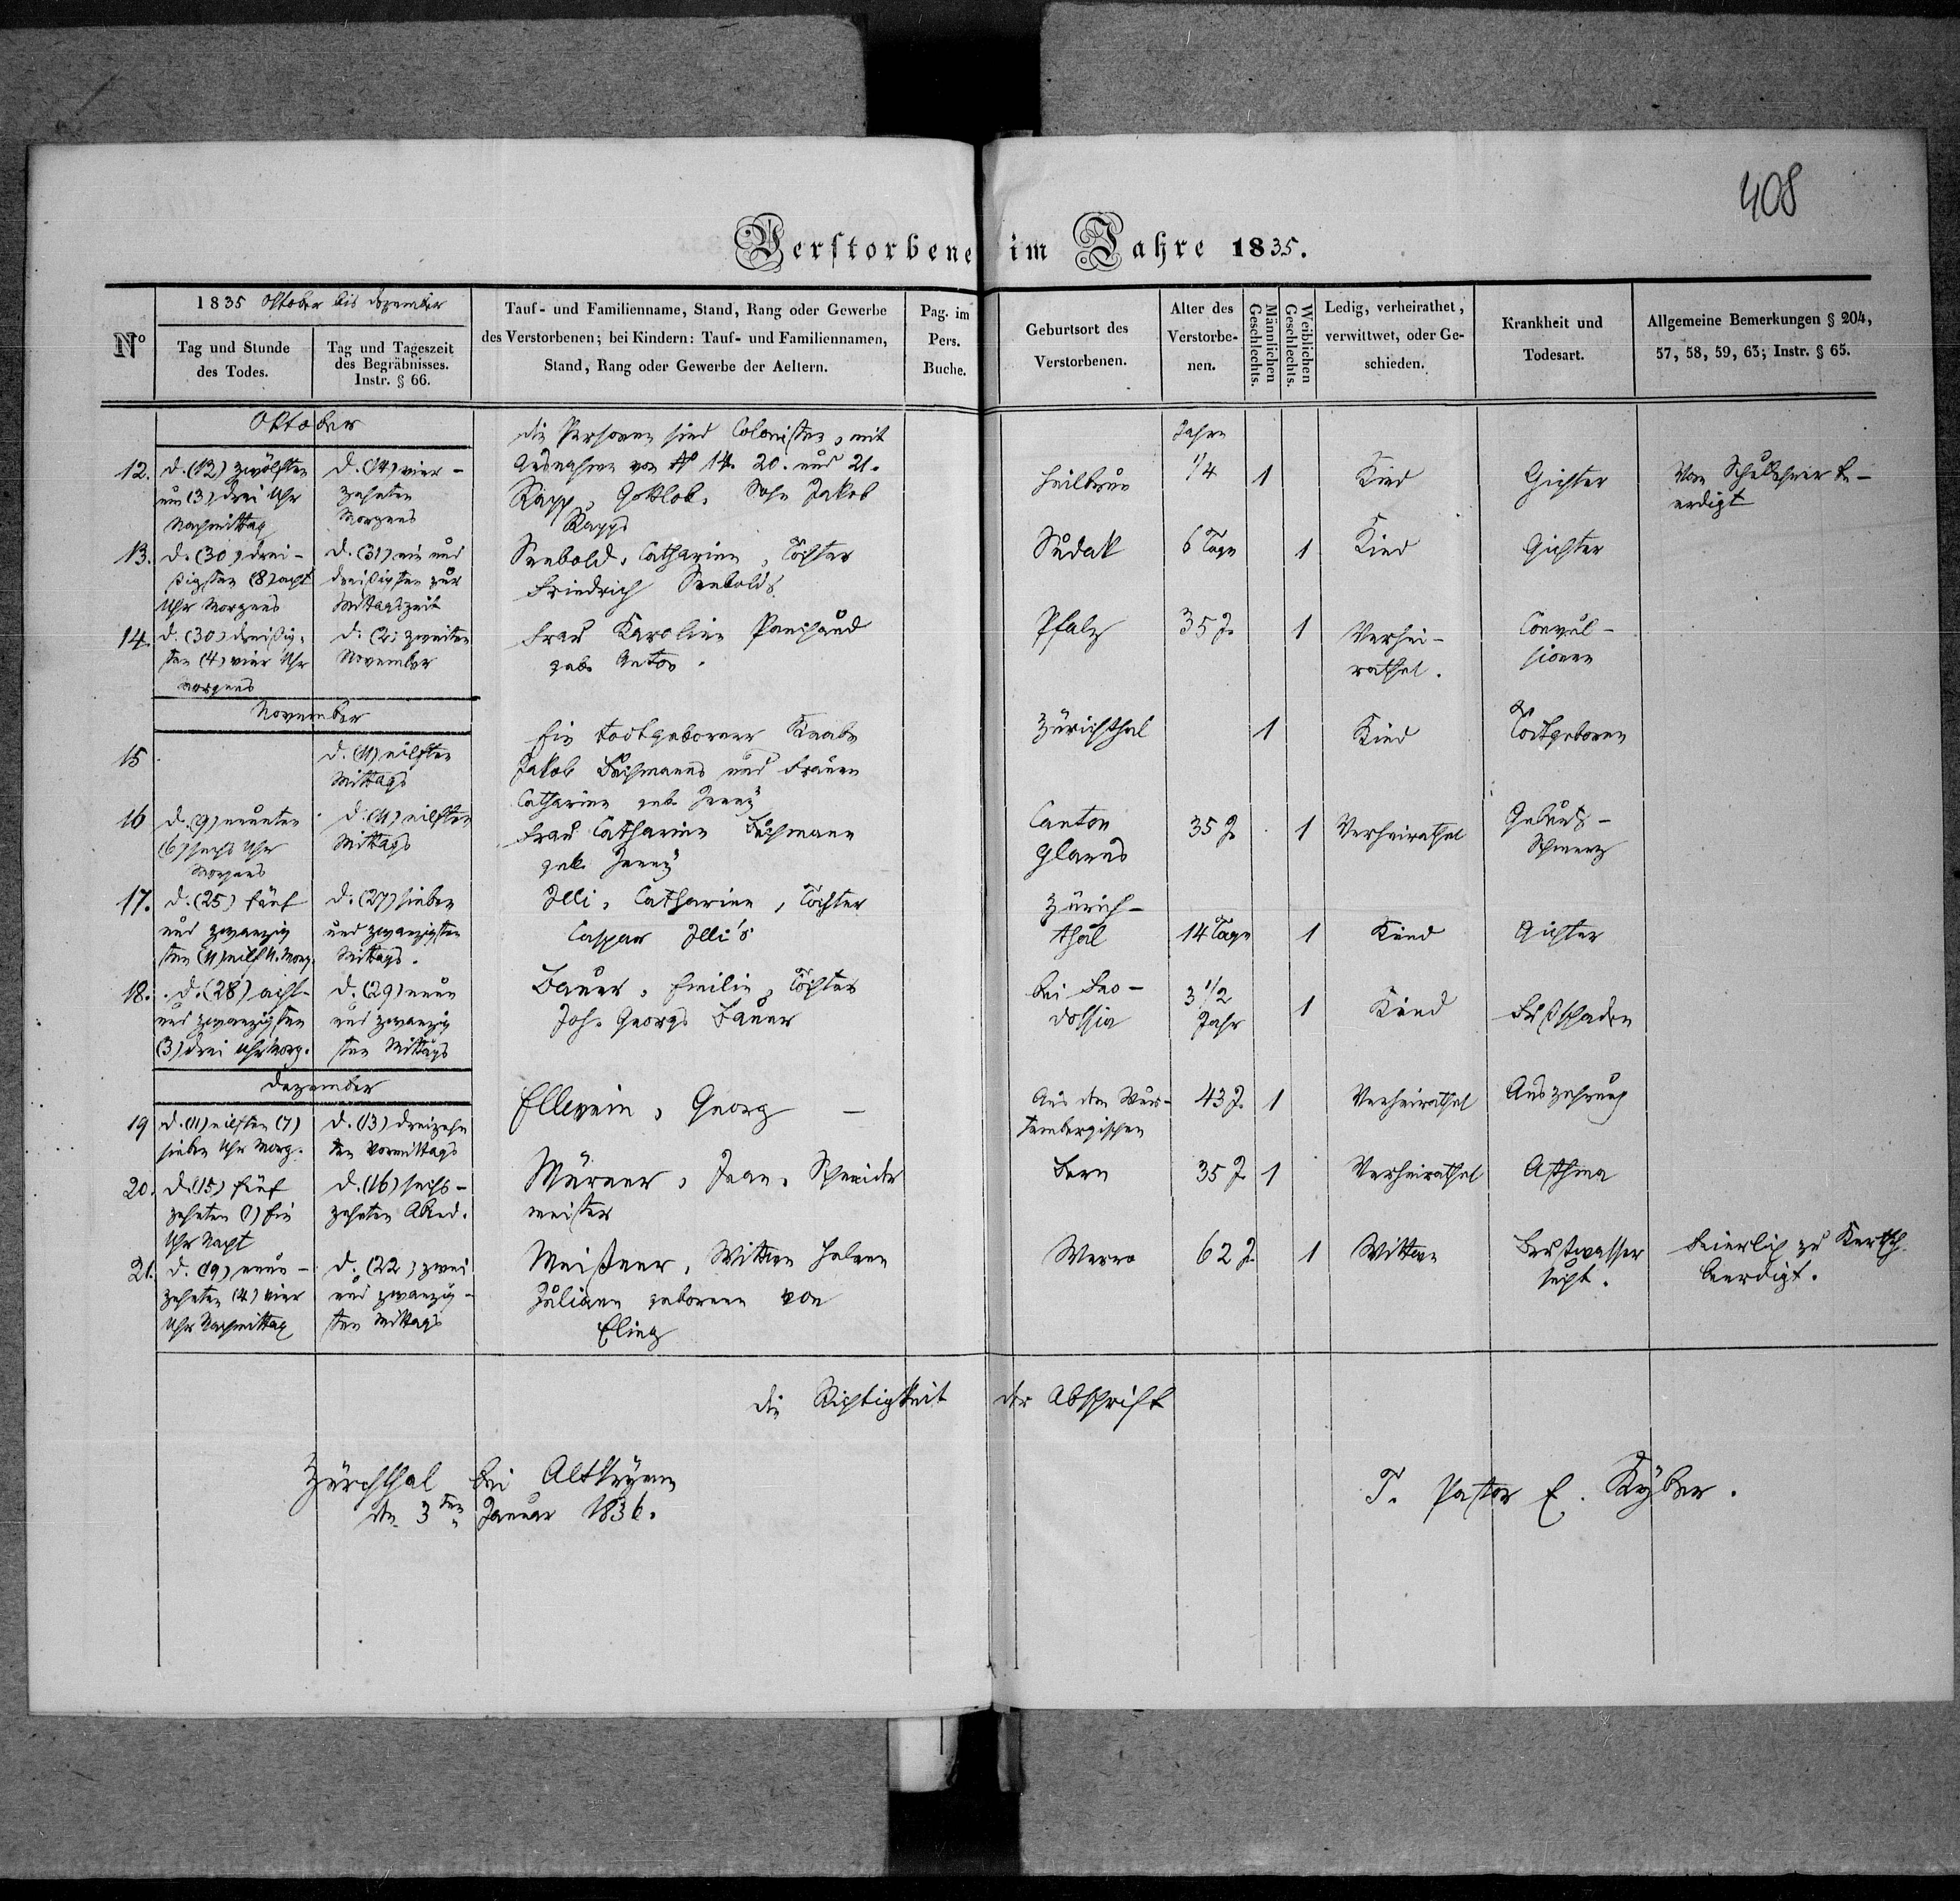 408
Verstorbene im Jahre 1835.
N°
1835 Oktober bis Dezember
Tag und Stunde
des Todes.
Tag und Tageszeit
des Begräbnisses.
Instr. § 66.
Tauf- und Familienname, Stand, Rang oder Gewerbe
des Verstorbenen; bei Kindern: Tauf- und Familiennamen,
Stand, Rang oder Gewerbe der Aeltern.
Pag. im
Pers.
Buche.
Geburtsort des
Verstorbenen.
Alter des
Verstorbe-
nen.
Männlichen
Geschlechts.
Weiblichen
Geschlechts.
Ledig, verheirathet,
verwittwet, oder Ge-
schieden.
Krankheit und
Todesart.
Allgemeine Bemerkungen § 204,
57, 58, 59, 63; Instr. § 65.
Oktober
Die Personen sind Colonisten, mit
Ausnahme von № 14. 20. und 21.
12.
d. (12) zwölften
um (3) drei Uhr
Nachmittag
d. (14) vier-
zehnten
Morgens
Rapp, Gottlob, Sohn Jakob
Rapps
Heilbrun
Jahre
1/4
1
Kind
Gichter
Vom Schullehrer be-
erdigt
13.
d. (30) drei-
ßigsten (8) acht
Uhr Morgens
d. (31) ein und
dreißigsten zur
Mittagszeit
Seebold, Catharine, Tochter
Friedrich Seebolds
Sudak
6 Tage
1
Kind
Gichter
14.
d. (30) dreißig-
sten (4) vier Uhr
Morgens
d. (2) zweiten
November
Frau Karoline
geb. Anton.
Pfalz
35 J.
1
Verhei-
rathet.
Convul-
sionen
November
15
d. (11) eilften
Mittags
Ein todtgeborner Knabe
Jakob Buhmanns und Frauen
Catharine geb. Jenny
Zürichthal
1
Kind
Todtgeboren
16
d. (9) neunten
(6) sechs Uhr
Morgens
d. (11) eilften
Mittags
Frau Catharine Buhmann
geb. Jenny
Canton
Glarus
35 J.
1
Verheirathet
Geburts-
Schmerz
17.
d. (25) fünf
und zwanzig
sten (11) eilf U. Morg.
d. (27) sieben
und zwanzigsten
Mittags.
Illi, Catharine, Tochter
Caspar Illi's
Zürich-
thal
14 Tage
1
Kind
Gichter
18.
d. (28) acht-
und zwanzigsten
(3) drei Uhr Morg.
d. (29) neun
und zwanzig
sten Mittags
Bauer, Emilie, Tochter
Joh. Georgs Bauer
bei Feo-
dossia
3 1/2
Jahr
1
Kind
Fußschaden
Dezember
19
d. (11) eilften (7)
sieben Uhr Morg.
d. (13) dreizehn
ten Vormittags
Ellwein, Georg —
Aus dem Wür-
tembergischen
43 J.
1
Verheirathet
Auszehrung
20.
d. (15) fünf
zehnten (1) Ein
Uhr Nacht
d. (16) sechs-
zehnten Abend.
Wärner, Jean, Schneider
meister
Bern
35 J.
1
Verheirathet
Asthma
21.
d. (19) neun-
zehnten (4) vier
Uhr Nachmittag
d. (22) zwei
und zwanzig-
sten Mittags
Meißner, Wittwe Helene
Juliane geborene von
Eling
Werro
62 J.
1
Wittwe
Brustwasser
sucht.
Feierlich zu Kertsch
beerdigt.
Die Richtigkeit der Abschrift
Zürchthal bei Altkrymm
den 3ten Januar 1836.
T. Pastor E. Kyber.